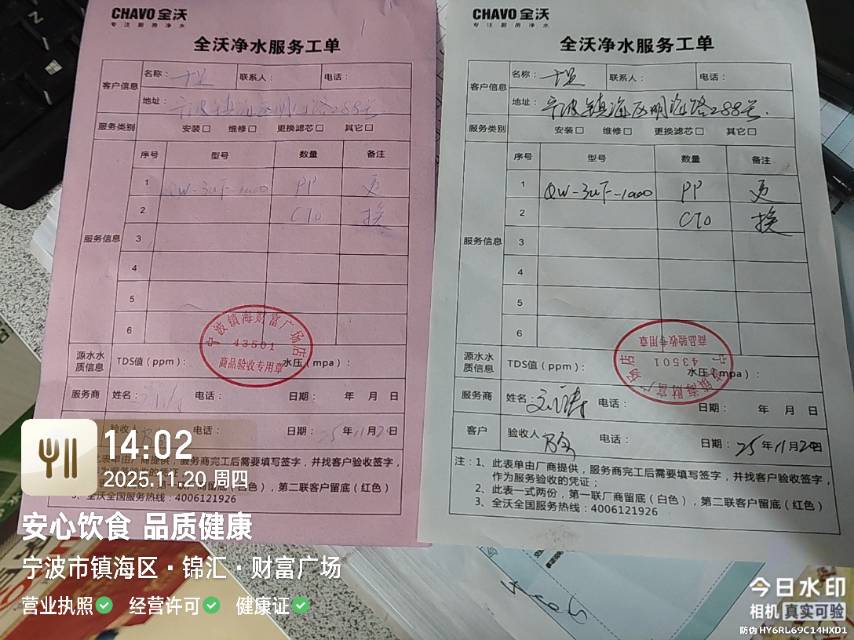 CHAVO 全沃
专注厨房净水
全沃净水服务工单
客户信息
名称：
联系人：
电话：
地址：宁波镇海区明海路288号
服务类别
安装□ 维修□ 更换滤芯□ 其它□
服务信息
序号 型号 数量 备注
1 QW-3UF-1000 PP 更
2 CTO 换
3
4
5
6
宁波镇海财富广场店
43501
商品验收专用章
源水水质信息
TDS值（ppm）：
水压（mpa）：
服务商 姓名： 电话： 日期： 年 月 日
验收人 电话： 25年11月20日
此表单由厂商提供，服务商完工后需要填写签字，并找客户验收签字，
白色），第二联客户留底（红色）
3、全沃全国服务热线：4006121926
CHAVO 全沃
专注厨房净水
全沃净水服务工单
客户信息
名称：
联系人：
电话：
地址：宁波镇海区明海路288号.
服务类别
安装□ 维修□ 更换滤芯□ 其它□
服务信息
序号 型号 数量 备注
1 QW-3UF-1000 PP 更
2 CTO 换
3
4
5
6
宁波镇海财富广场店
43501
商品验收专用章
源水水质信息
TDS值（ppm）：
水压（mpa）：
服务商 姓名： 电话： 日期： 年 月 日
客户 验收人 电话： 日期：25年11月20日
注：1、此表单由厂商提供，服务商完工后需要填写签字，并找客户验收签字，
作为服务完的凭证；
2、此表一式两份，第一联厂商留底（白色），第二联客户留底（红色）
3、全沃全国服务热线：4006121926
14:02
2025.11.20 周四
安心饮食 品质健康
宁波市镇海区·锦汇·财富广场
营业执照 经营许可 健康证
今日水印
相机 真实可验
防伪 HY6RL69C14HXD1